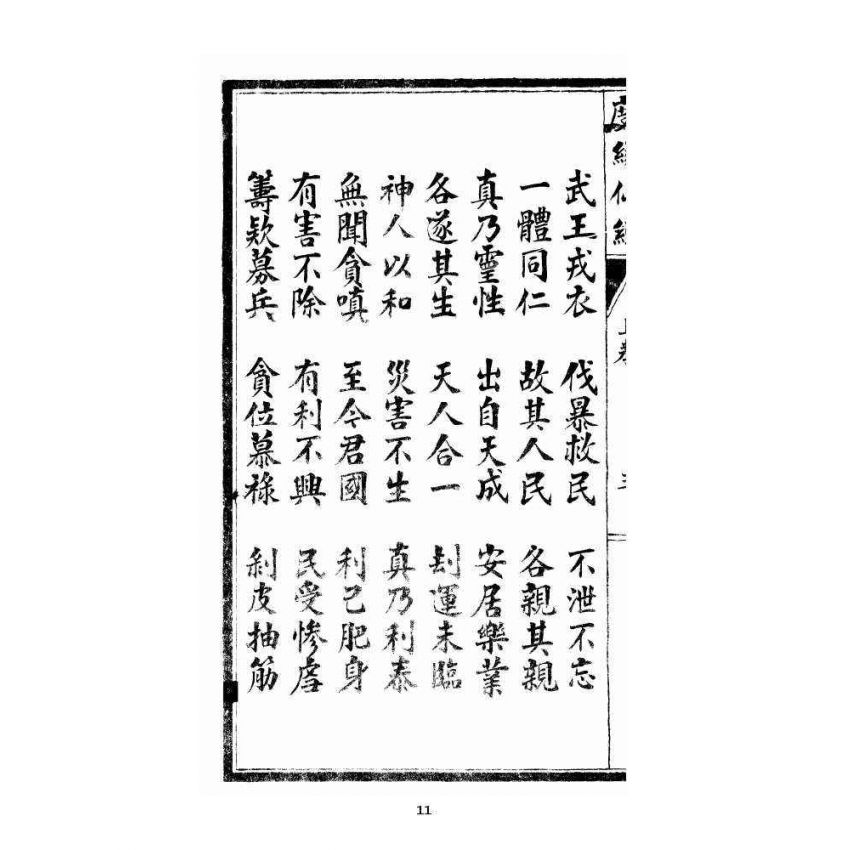 上卷
武王戎衣 伐暴救民 不泄不忘
一體同仁 故其人民 各親其親
真乃靈性 出自天成 安居樂業
各遂其生 天人合一 刦運未臨
神人以和 災害不生 真乃利泰
無聞貪嗔 至今君國 利己肥身
有害不除 有利不興 民受慘虐
籌欵募兵 貪位慕祿 剝皮抽筋
11